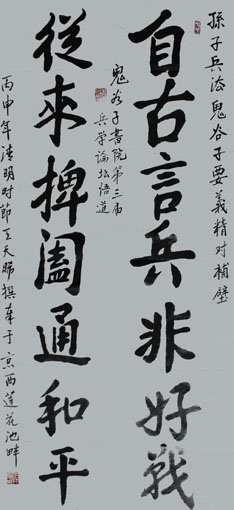 孫子兵法鬼谷子要義精对補壁
自古言兵非好戰
鬼谷子書院第三届
兵学論坛悟道
從來捭阖通和平
丙申年清明时節王天 撰奉于京西莲花池畔